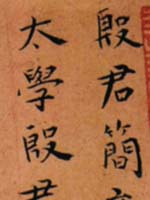 殷君簡
太學殷君